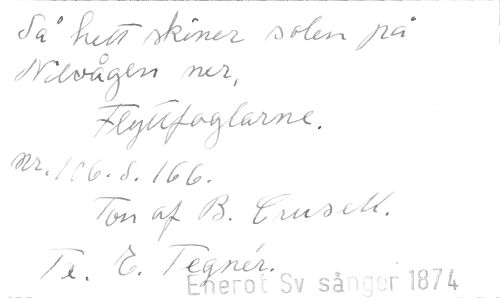 Så hett skiner solen på
Nilvågen ner,
Flyttfoglarne.
nr. 106. s. 166.
Ton af B. Crusell.
Te. E. Tegnér.
Enerot Sv sånger 1874